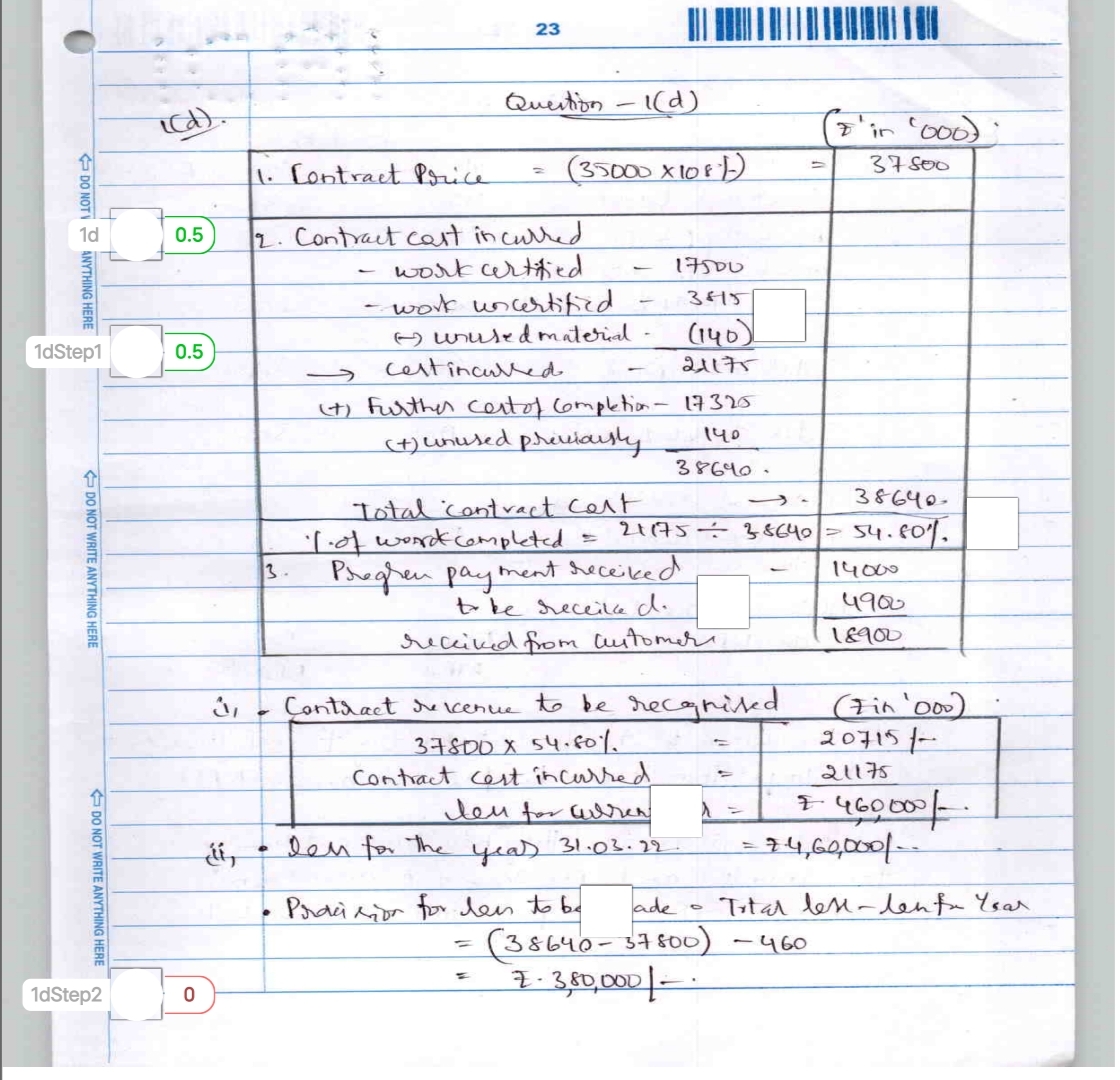 23
Question - 1(d)
1(d).
(₹ in '000)
1. Contract Price = (35000 × 108%) = 37800
1d 0.5
2. Contract cost incurred
- work certified - 17500
- work uncertified - 3815
(-) unused material - (140)
1dStep1 0.5
→ cost incurred - 21175
(+) Further cost of completion - 17325
(+) unused previously 140
38640.
Total contract cost → 38640.
%.of work completed = 21175 ÷ 38640 = 54.80%.
3. Progress payment received - 14000
to be received. 4900
received from customers 18900
i, • Contract revenue to be recognised (₹ in '000)
37800 × 54.80%. = 20715/-
Contract cost incurred = 21175
loss for = ₹ 460,000/-.
ii, • loss for the year 31.03.22. = ₹4,60,000/-.
• Provision for loss to be ade = Total loss - loss for Year
= (38640 - 37800) - 460
= ₹. 3,80,000/-.
1dStep2 0
DO NOT ANYTHING HERE
DO NOT WRITE ANYTHING HERE
DO NOT WRITE ANYTHING HERE